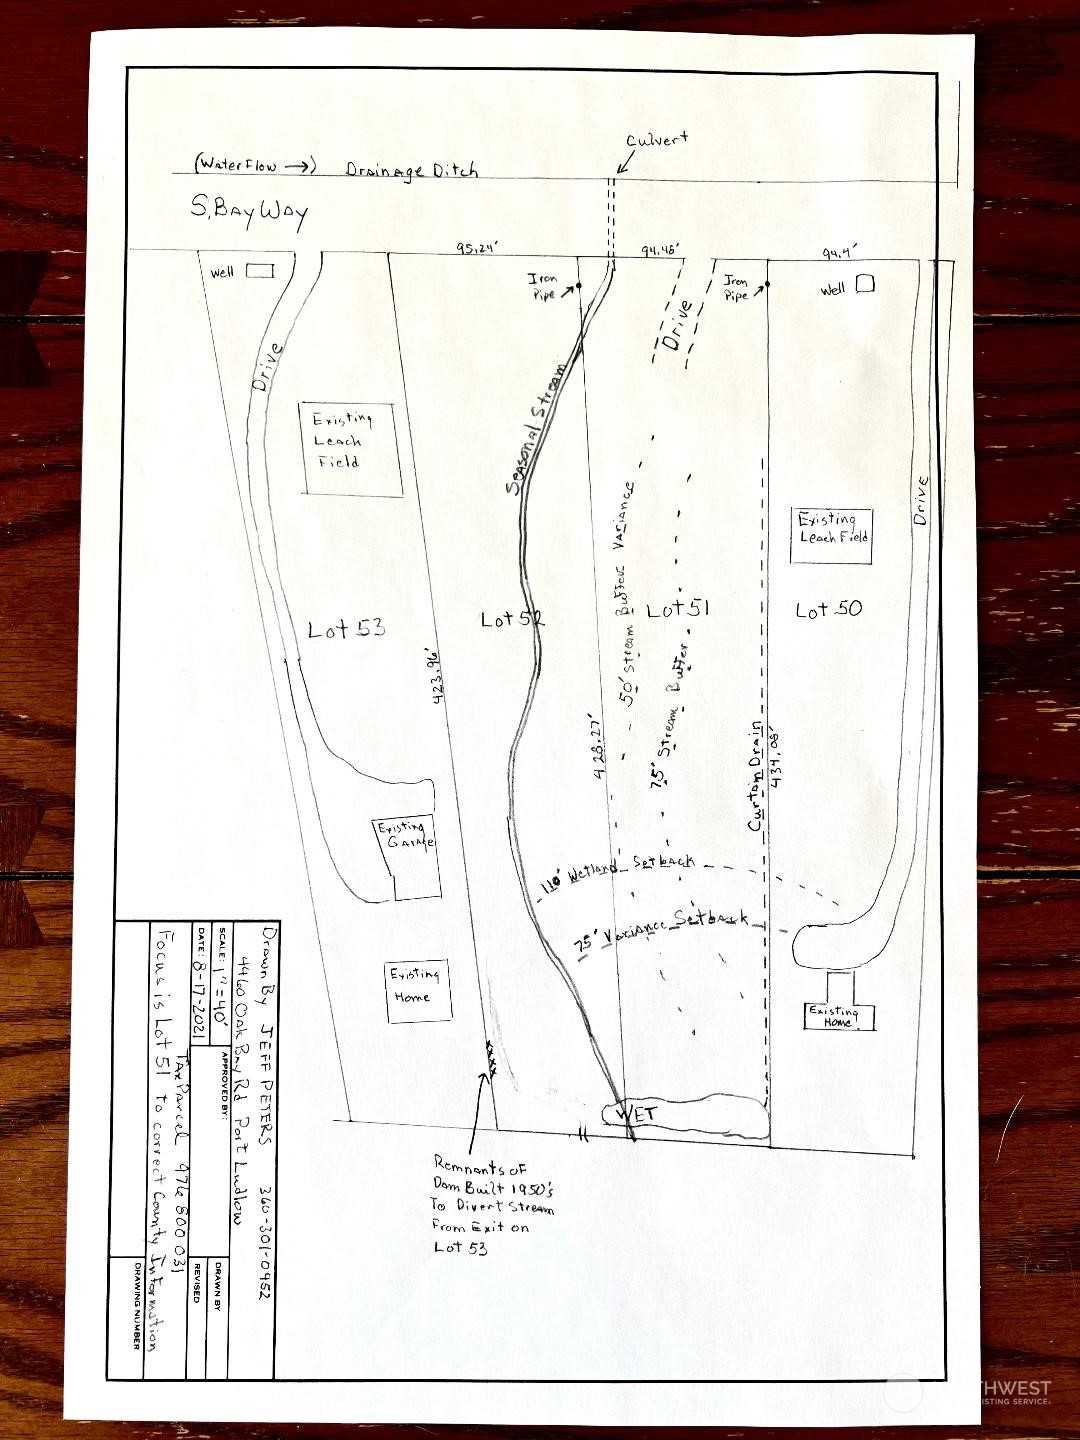 Culvert
(Water Flow →) Drainage Ditch
S. Bay Way
95.24'
94.48'
94.4'
Well
Iron
Pipe
Iron
Pipe
Well
Drive
Drive
Drive
Seasonal Stream
Existing
Leach
Field
Existing
Leach Field
50' Stream Buffer Variance
75' Stream Buffer
Lot 53
Lot 52
Lot 51
Lot 50
423.96'
428.27'
434.08'
Curtain Drain
Existing
Garage
110' Wetland Setback
75' Variance Setback
Existing
Home
Existing
Home
WET
xxxx
Remnants of
Dam Built 1950's
To Divert Stream
From Exit on
Lot 53
Drawn By JEFF PETERS 360-301-0452
4460 Oak Bay Rd Port Ludlow
SCALE: 1" = 40'
APPROVED BY:
DRAWN BY
DATE: 8-17-2021
REVISED
Tax Parcel 976 800 031
Focus is Lot 51 to correct County Information
DRAWING NUMBER
THWEST
ISTING SERVICE